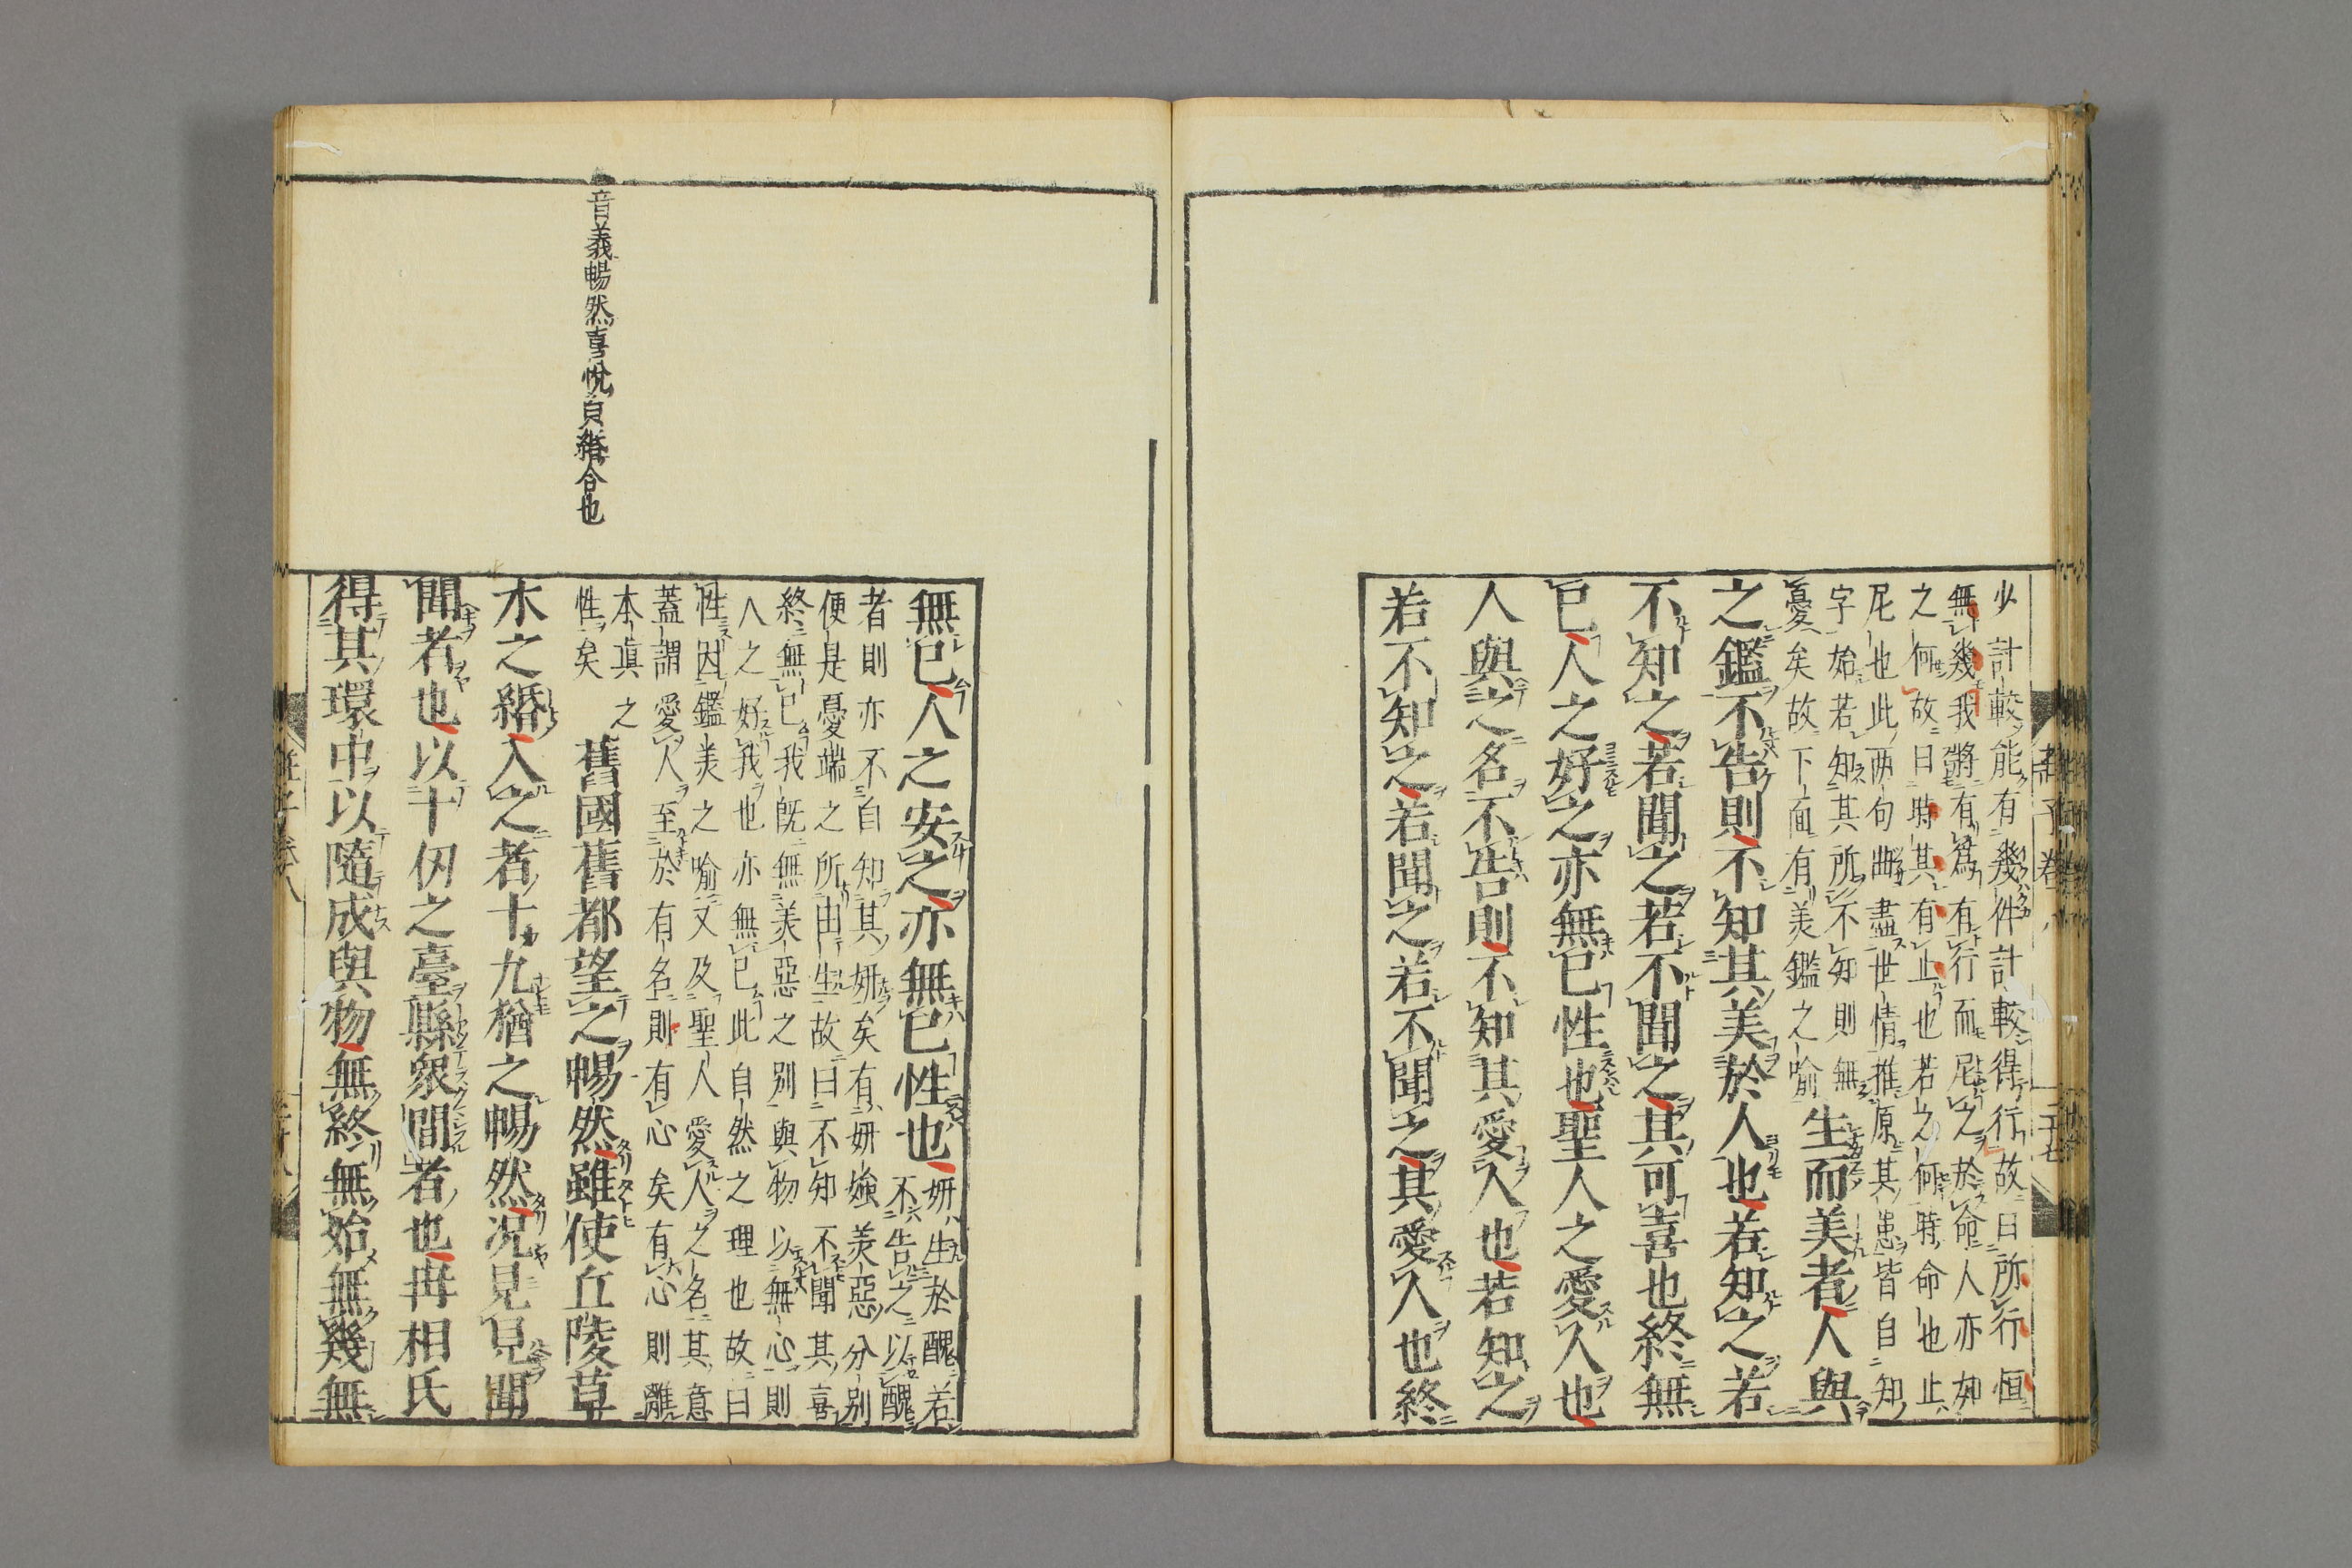 少計較能有幾件計較得行故曰所行恒
無幾我將有爲有行而尼之於命人亦如
之何故曰時其有止也若之何時命也止
尼也此两句曲盡世情推原其患皆自知
字始若知其所不知則無
憂矣故下面有美鑑之喻
生而美者人與
之鑑不告則不知其美於人也若知之若
不知之若聞之若不聞之其可喜也終無
已人之好之亦無已性也聖人之愛人也
人與之名不告則不知其愛人也若知之
若不知之若聞之若不聞之其愛人也終
音義暢然喜悅皃緡合也
無已人之安之亦無已性也
妍生於醜若
不告之以醜
者則亦不自知其妍矣有妍媸美惡分別
便是憂端之所由生故曰不知不聞其喜
終無已我既無美惡之別與物以無心則
人之好我也亦無已此自然之理也故曰
性因鑑美之喻又及聖人愛人之名其意
蓋謂愛人至於有名則有心矣有心則離
本眞之
性矣
舊國舊都望之暢然雖使丘陵草
木之緡入之者十九猶之暢然况見見聞
聞者也以十仞之臺縣衆間者也冉相氏
得其環中以隨成與物無終無始無幾無